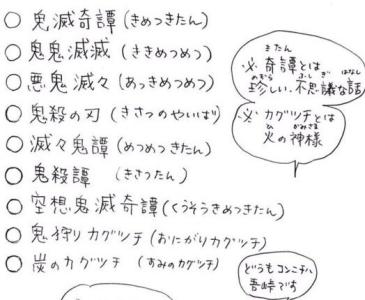 ○ 鬼滅奇譚(きめつきたん)
○ 鬼鬼滅滅(ききめつめつ)
○ 悪鬼滅々(あっきめつめつ)
○ 鬼殺の刃(きさつのやいば)
○ 滅々鬼譚(めつめつきたん)
○ 鬼殺譚(きさつたん)
○ 空想鬼滅奇譚(くうそうきめつきたん)
○ 鬼狩りカグツチ(おにがりカグツチ)
○ 炭のカグツチ(すみのカグツチ)
きたん
※ 奇譚とは
めずら ふしぎ はなし
珍しい、不思議な話
※ カグツチとは
ひ かみさま
火の神様
どうもコンニチハ
吾峠です